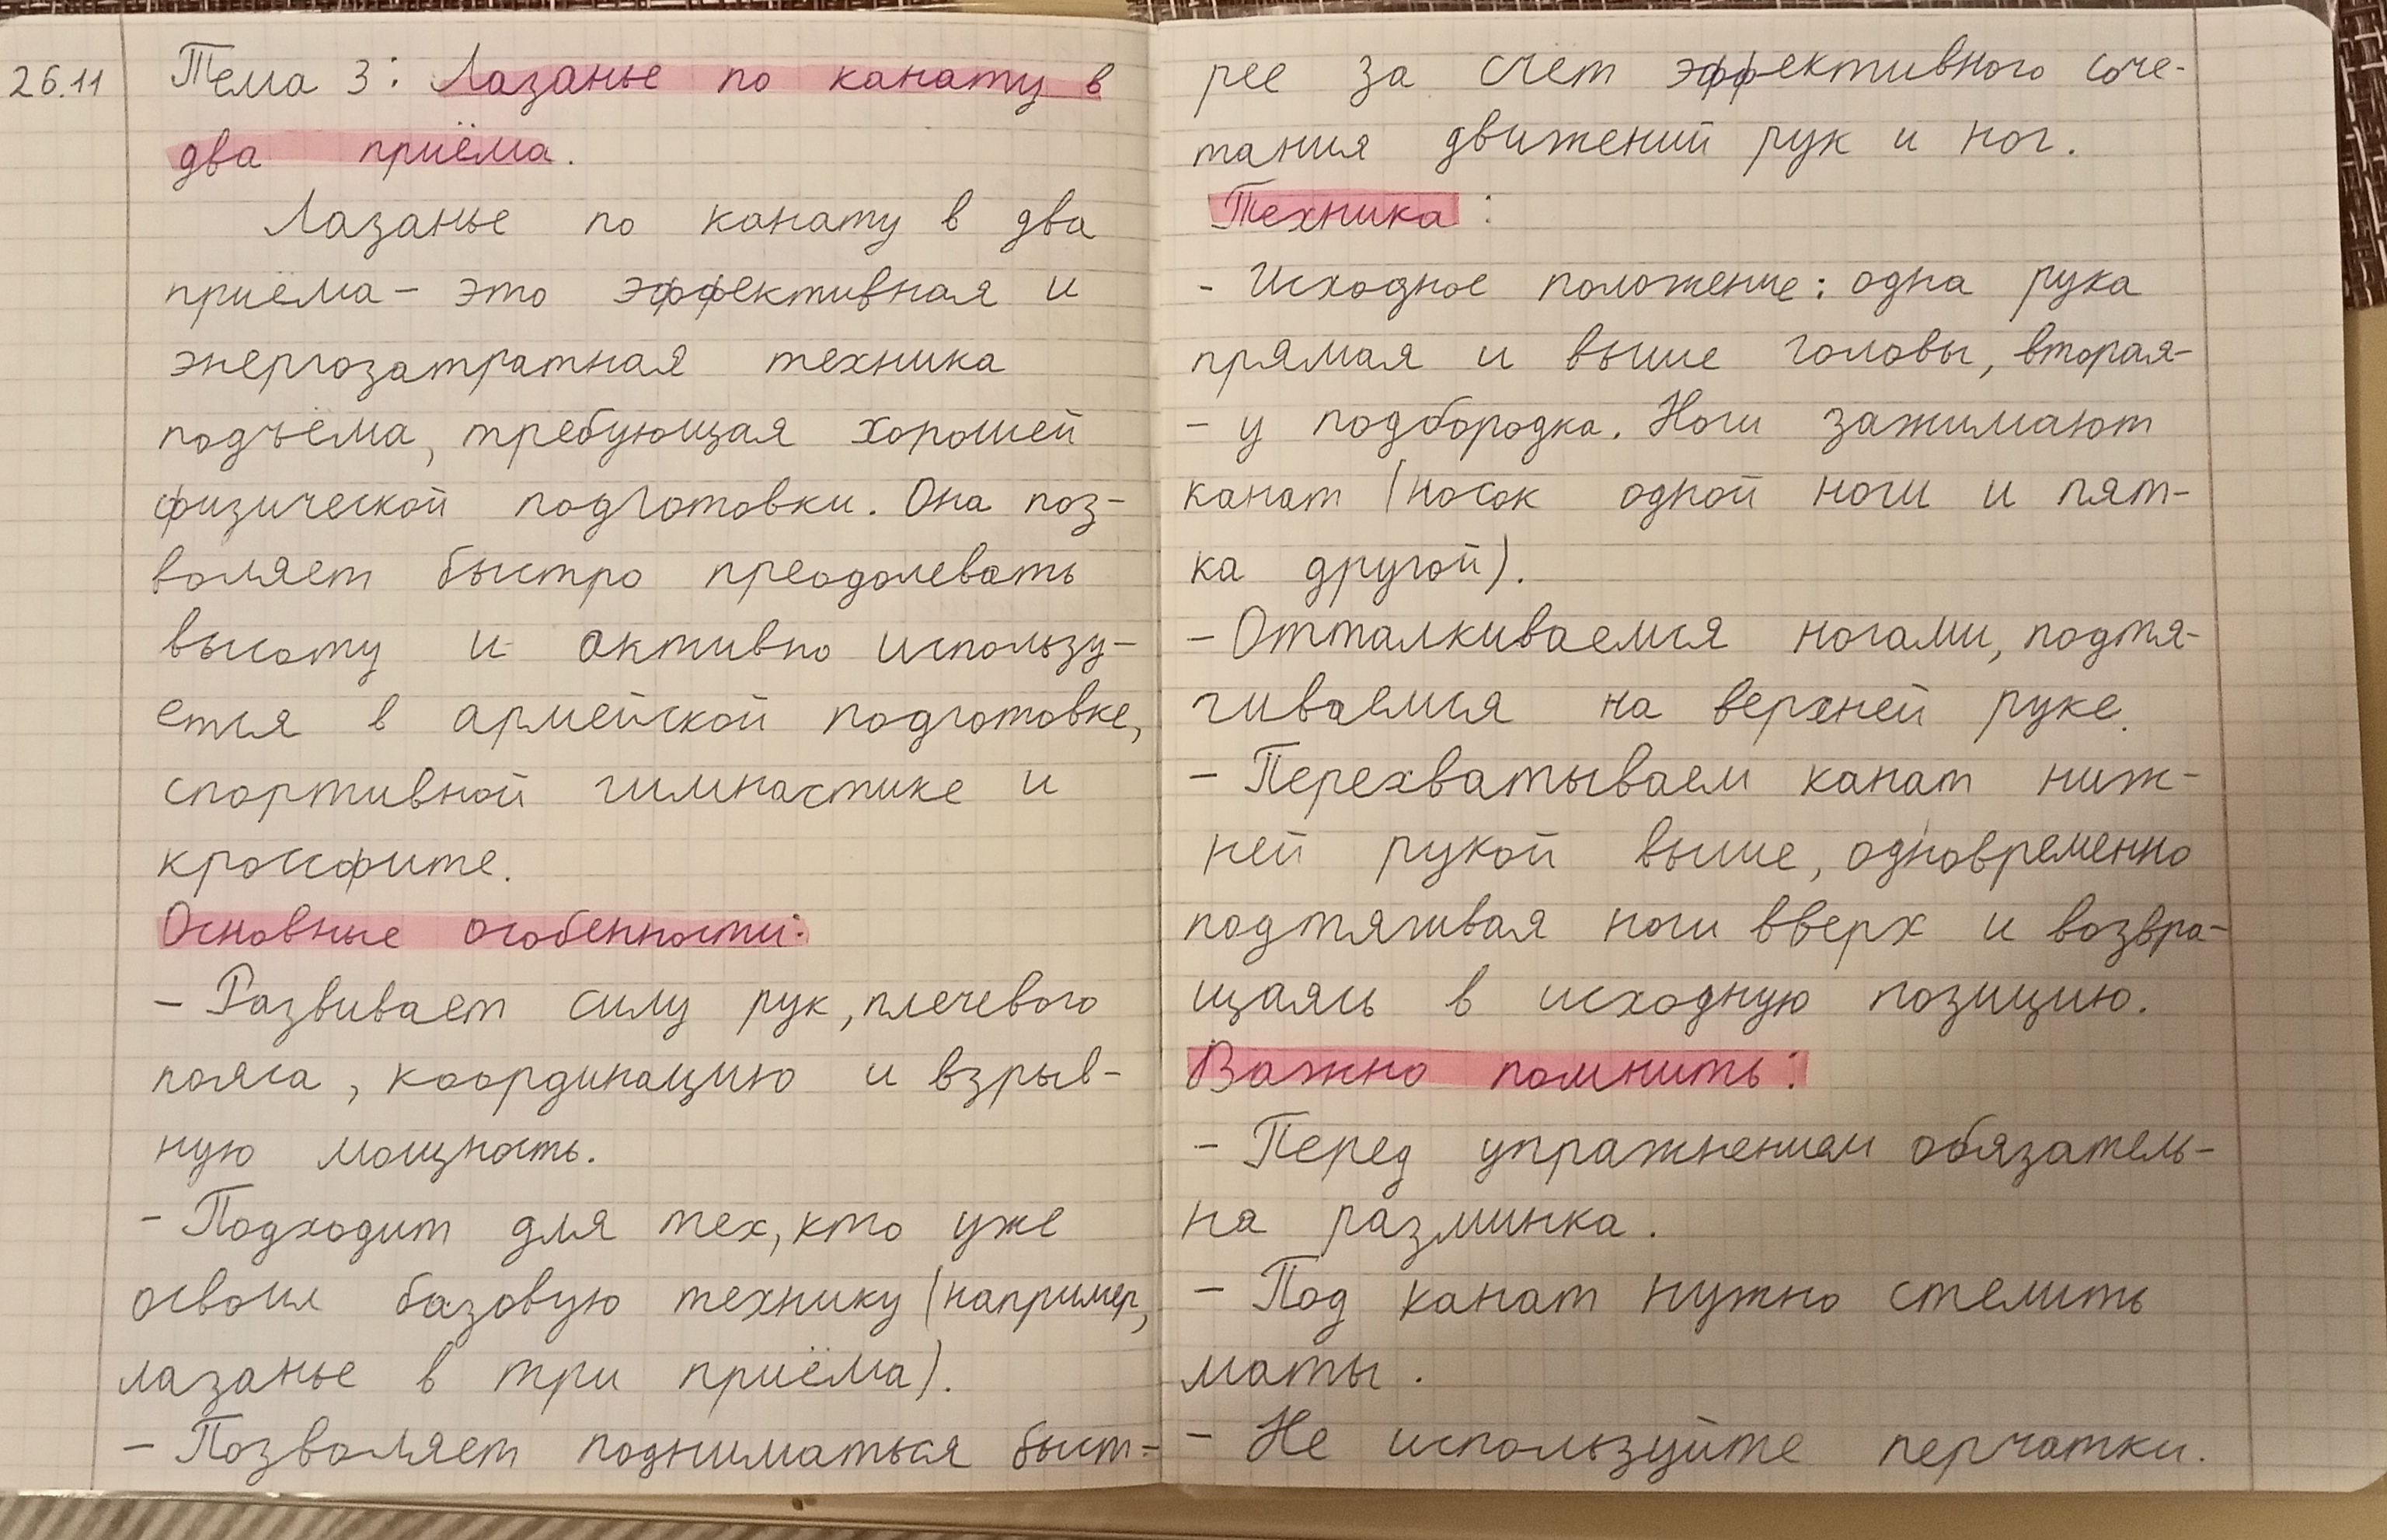 26.11 Тема 3: Лазанье по канату в
два приёма.
Лазанье по канату в два
приёма - это эффективная и
энергозатратная техника
подъёма, требующая хорошей
физической подготовки. Она поз-
воляет быстро преодолевать
высоту и активно использу-
ется в армейской подготовке,
спортивной гимнастике и
кроссфите.
Основные особенности:
- Развивает силу рук, плечевого
пояса, координацию и взрыв-
ную мощность.
- Подходит для тех, кто уже
освоил базовую технику (например,
лазанье в три приёма).
- Позволяет подниматься быст-
рее за счет эффективного соче-
тания движений рук и ног.
Техника:
- Исходное положение: одна рука
прямая и выше головы, вторая-
- у подбородка. Ноги зажимают
канат (носок одной ноги и пят-
ка другой).
- Отталкиваемся ногами, подтя-
гиваемся на верхней руке.
- Перехватываем канат ниж-
ней рукой выше, одновременно
подтягивая ноги вверх и возвра-
щаясь в исходную позицию.
Важно помнить:
- Перед упражнением обязатель-
на разминка.
- Под канат нужно стелить
маты.
- Не используйте перчатки.